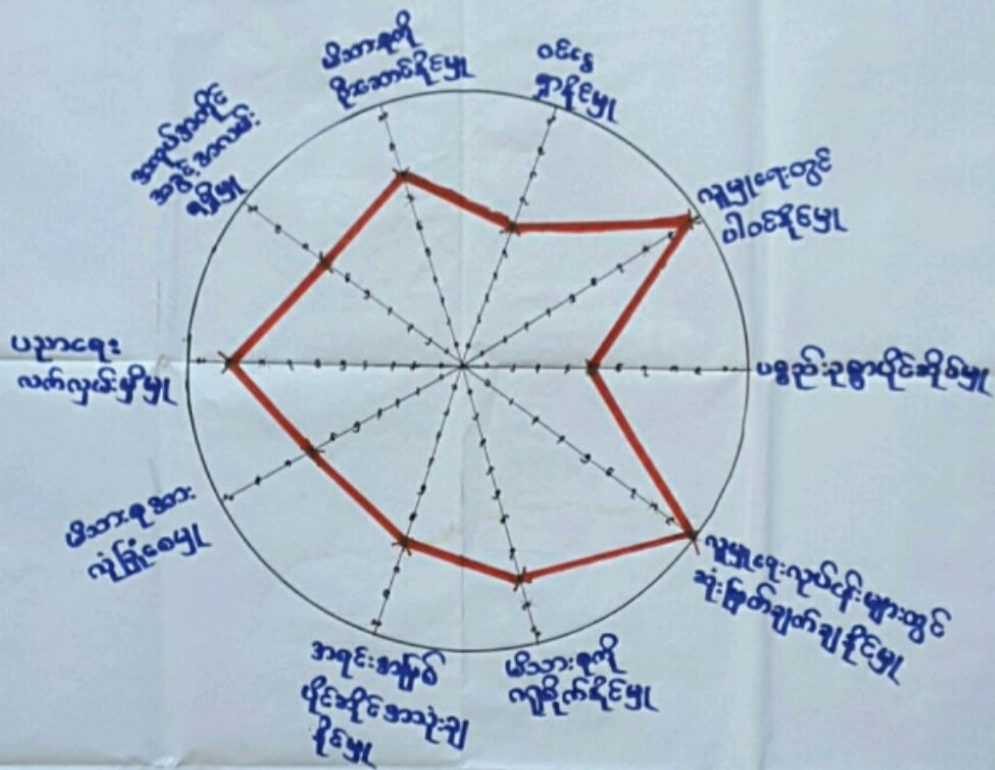 မိသားစုကို
ဦးဆောင်နိုင်မှု
ဝင်ငွေ
ရှာနိုင်မှု
လူမှုရေးတွင်
ပါဝင်နိုင်မှု
ပစ္စည်းဥစ္စာပိုင်ဆိုင်မှု
လူမှုရေးလုပ်ငန်းများတွင်
ဆုံးဖြတ်ချက်ချနိုင်မှု
မိသားစုကို
ဂရုစိုက်နိုင်မှု
အရင်းအမြစ်
ပိုင်ဆိုင်အသုံးချ
နိုင်မှု
မိသားစုအား
လုံခြုံစေမှု
ပညာရေး
လက်လှမ်းမှီမှု
အလုပ်အကိုင်
အခွင့်အလမ်း
ရရှိမှု